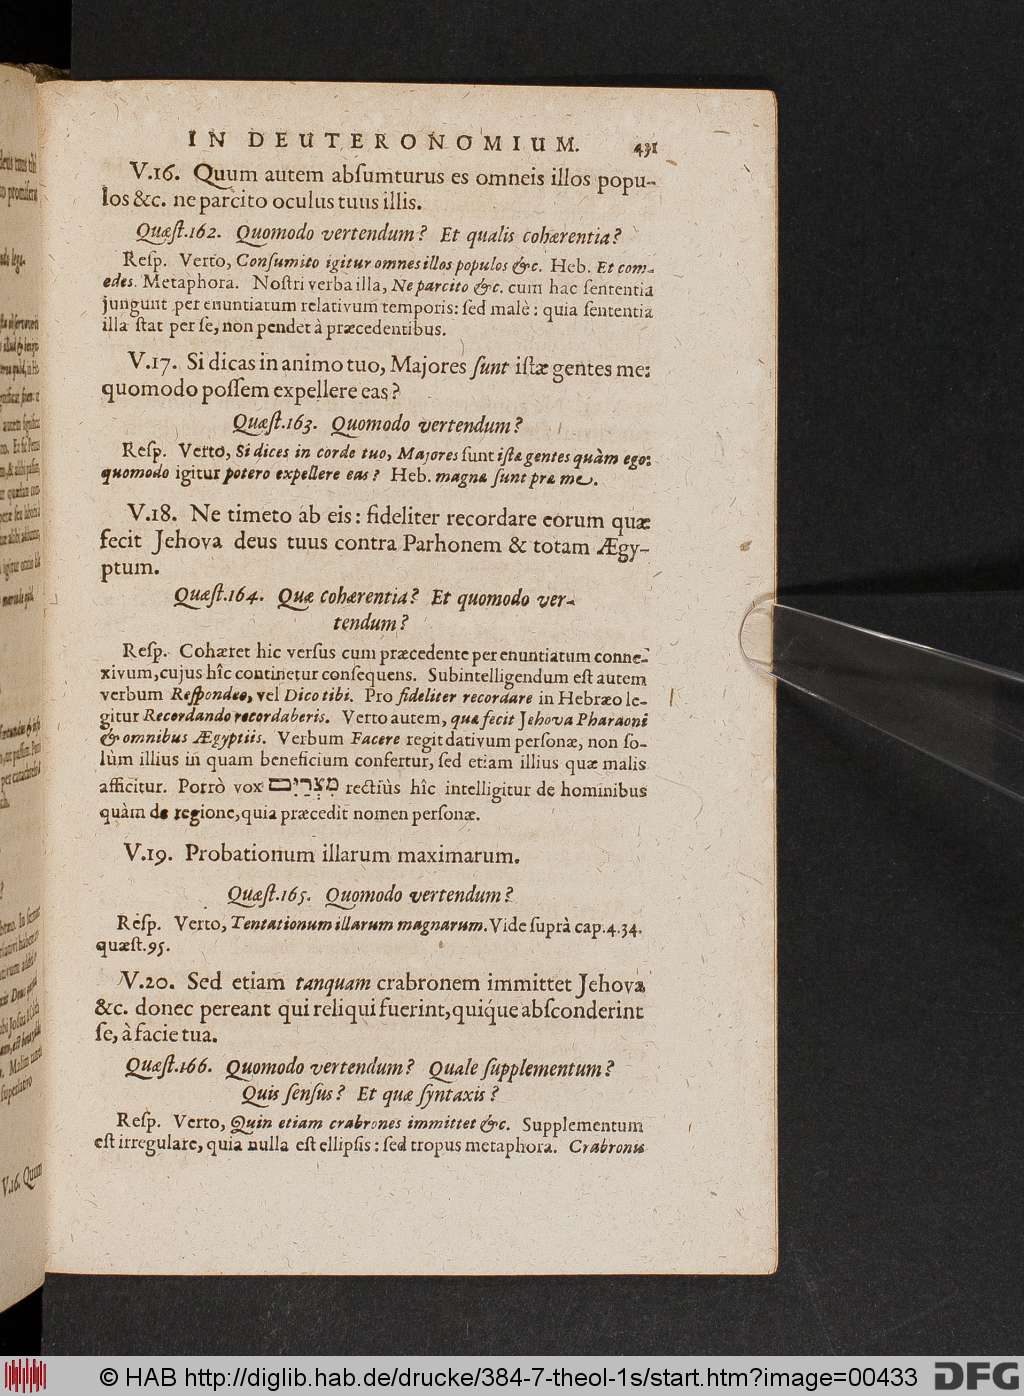 IN DEUTERONOMIUM. 431
V.16. Quum autem absumturus es omneis illos popu-
los &c. ne parcito oculus tuus illis.
Quæst.162. Quomodo vertendum? Et qualis cohærentia?
Resp. Verto, Consumito igitur omnes illos populos &c. Heb. Et com-
edes. Metaphora. Nostri verba illa, Ne parcito &c. cum hac sententia
jungunt per enuntiatum relativum temporis: sed malè: quia sententia
illa stat per se, non pendet à præcedentibus.
V.17. Si dicas in animo tuo, Majores sunt istæ gentes me:
quomodo possem expellere eas?
Quæst.163. Quomodo vertendum?
Resp. Verto, Si dices in corde tuo, Majores sunt istæ gentes quàm ego:
quomodo igitur potero expellere eas? Heb. magnæ sunt præ me.
V.18. Ne timeto ab eis: fideliter recordare eorum quæ
fecit Jehova deus tuus contra Parhonem & totam Ægy-
ptum.
Quæst.164. Quæ cohærentia? Et quomodo ver-
tendum?
Resp. Cohæret hic versus cum præcedente per enuntiatum conne-
xivum, cujus hîc continetur consequens. Subintelligendum est autem
verbum Respondeo, vel Dico tibi. Pro fideliter recordare in Hebræo le-
gitur Recordando recordaberis. Verto autem, quæ fecit Jehova Pharaoni
& omnibus Ægyptiis. Verbum Facere regit dativum personæ, non so-
lùm illius in quam beneficium confertur, sed etiam illius quæ malis
afficitur. Porrò vox מִצְרַיִם rectiùs hîc intelligitur de hominibus
quàm de regione, quia præcedit nomen personæ.
V.19. Probationum illarum maximarum.
Quæst.165. Quomodo vertendum?
Resp. Verto, Tentationum illarum magnarum. Vide suprà cap.4.34.
quæst.95.
V.20. Sed etiam tanquam crabronem immittet Jehova
&c. donec pereant qui reliqui fuerint, quíque absconderint
se, à facie tua.
Quæst.166. Quomodo vertendum? Quale supplementum?
Quis sensus? Et quæ syntaxis?
Resp. Verto, Quin etiam crabrones immittet &c. Supplementum
est irregulare, quia nulla est ellipsis: sed tropus metaphora. Crabronis
V.16. Quum
© HAB http://diglib.hab.de/drucke/384-7-theol-1s/start.htm?image=00433
DFG